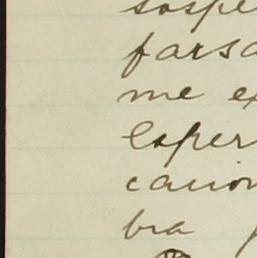 sospe
farsa
me ex
Esper
cacion
bra